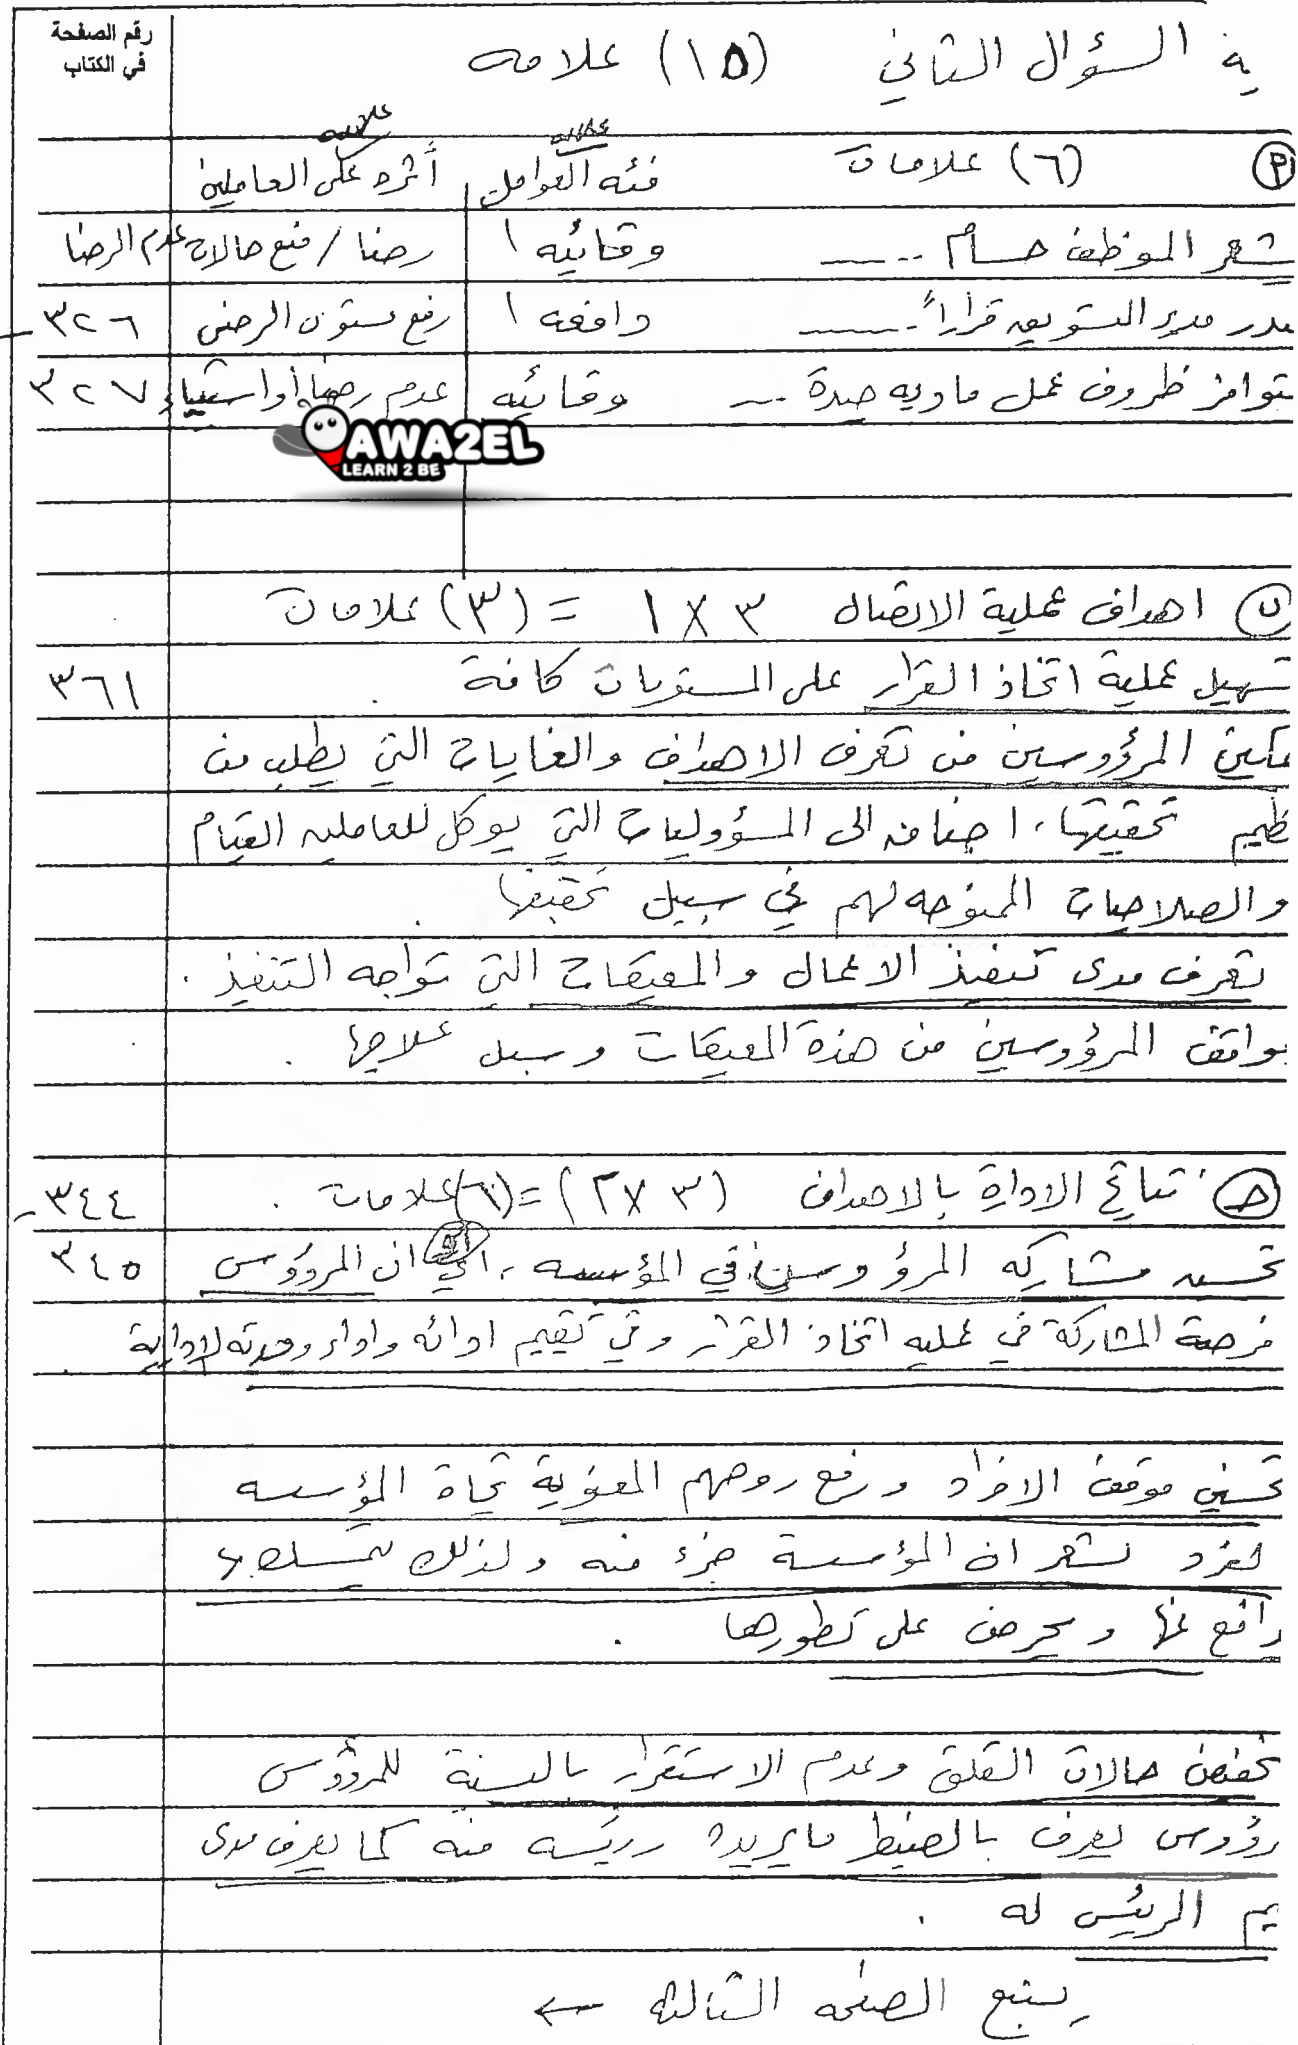 رقم الصفحة
في الكتاب
السؤال الثاني (١٥) علامه
(٦) علامات فئه العوامل أثره على العاملين
علامه علامه
شعر الموظف حسام ...... وقائيه ١ رضا / منع حالات عدم الرضا
مدير التسويق قراراً ...... دافعه ١ رفع مستوى الرضى ٣٢٦
توافر ظروف عمل ماديه جيدة ... وقائيه عدم رضا أو استياء ٣٢٧
AWA2EL
LEARN 2 BE
ب اهداف عملية الاتصال ٣ × ١ = (٣) علامات
تسهيل عملية اتخاذ القرار على المستويات كافة . ٣٦١
المرؤوسين من تعرف الاهداف والغايات التي يطلب من
تحقيقها، اضافه الى المسؤوليات التي يوكل للعاملين القيام
والصلاحيات الممنوحه لهم في سبيل تحقيقها .
تعرف مدى تنفيذ الاعمال والمعيقات التي تواجه التنفيذ .
المرؤوسين من هذة المعيقات وسبل علاجها .
ج نتائج الادارة بالاهداف (٣ × ٢) = (٦) علامات . ٣٤٤
تحسين مشاركه المرؤوسين في المؤسسه ، اي ان المرؤوس ٣٤٥
فرصة المشاركة في عمليه اتخاذ القرار وفي تقييم ادائه واداء وحدته الادارية .
تحسين موقف الافراد ورفع روحهم المعنوية تجاة المؤسسه
يشعر ان المؤسسة جزء منه ولذلك يتمسك بها
عنها ويحرص على تطورها .
تخفض حالات القلق وعدم الاستقرار بالنسبة للمرؤوس
يعرف بالضبط مايريده رئيسه منه كما يعرف مدى
الرئيس له .
يتبع الصفحه الثالثه ←